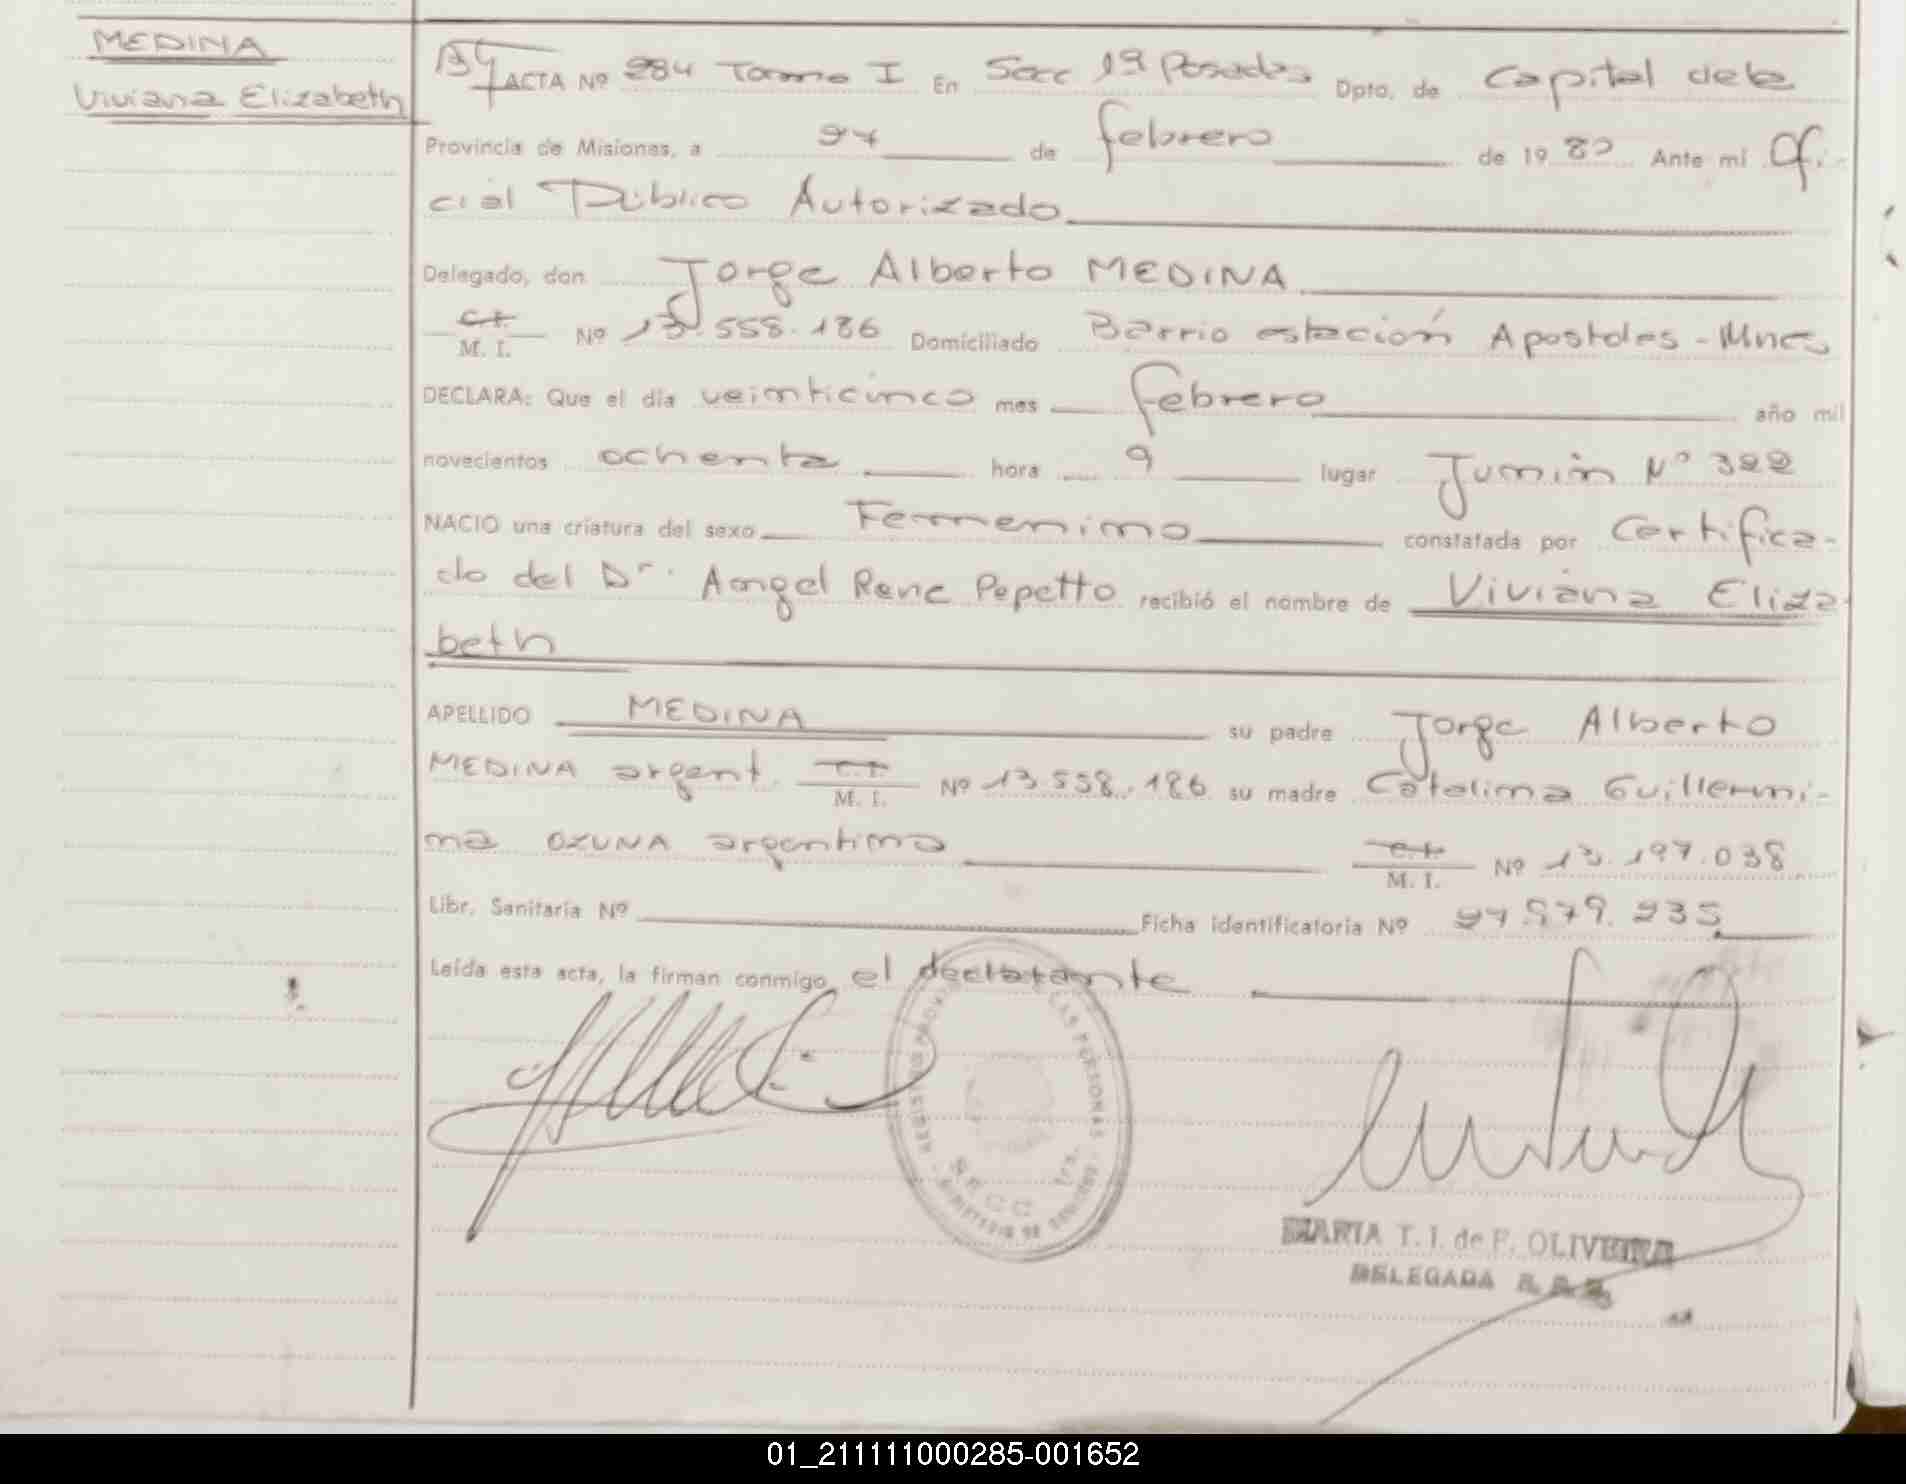 MEDINA
Viviana Elizabeth
ACTA Nº 284 Tomo I En Secc 1ª Posadas Dpto. de Capital dela
Provincia de Misiones, a 27 de febrero de 1980 Ante mi Ofi-
cial Público Autorizado
Delegado, don Jorge Alberto MEDINA
C.I. M. I. Nº 13.558.186 Domiciliado Barrio estación Apostoles - Mnes
DECLARA: Que el día veinticinco mes febrero año mil
novecientos ochenta hora 9 lugar Junin Nº 322
NACIO una criatura del sexo Femenino constatada por Certifica-
do del Dr. Angel Rene Pepetto recibió el nombre de Viviana Eliza-
beth
APELLIDO MEDINA su padre Jorge Alberto
MEDINA argent. C.I. M. I. Nº 13.558.186 su madre Catalina Guillermi-
na OZUNA argentina C.I. M. I. Nº 13.197.038
Libr. Sanitaria Nº Ficha identificatoria Nº 27.979.235
Leída esta acta, la firman conmigo el declarante
REGISTRO PROVINCIAL DE LAS PERSONAS
MARIA T. I. de P. OLIVEIRA
DELEGADA
01_211111000285-001652